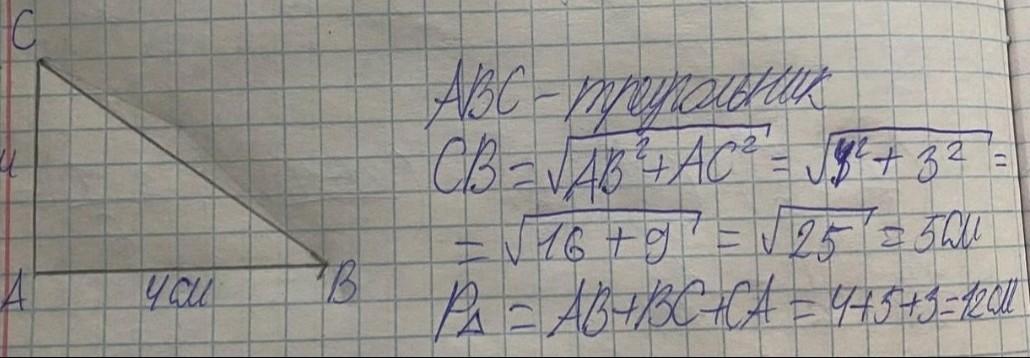 C
ABC - треугольник
CB = √AB² + AC² = √4² + 3² =
= √16 + 9 = √25 = 5см
A 4см B
P△ = AB + BC + CA = 4 + 5 + 3 = 12см